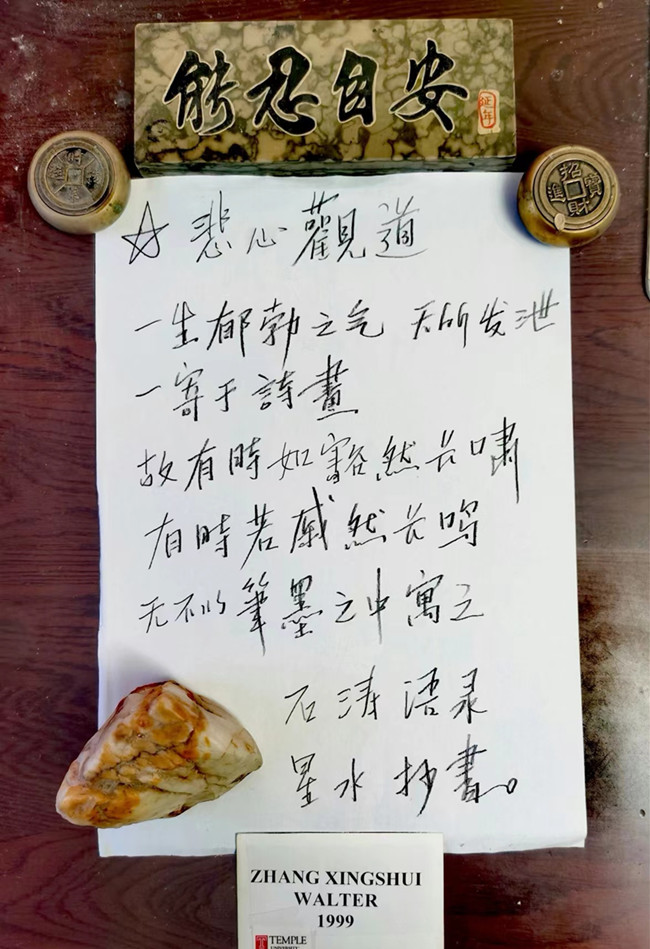 能忍自安
招財進寶
☆ 悲心觀道
一生郁勃之气 无所发泄
一寄于詩畫
故有時如豁然长啸
有時若戚然长鸣
无不以筆墨之中寓之
石涛语录
星水抄書。
ZHANG XINGSHUI
WALTER
1999
TEMPLE
UNIVERSITY